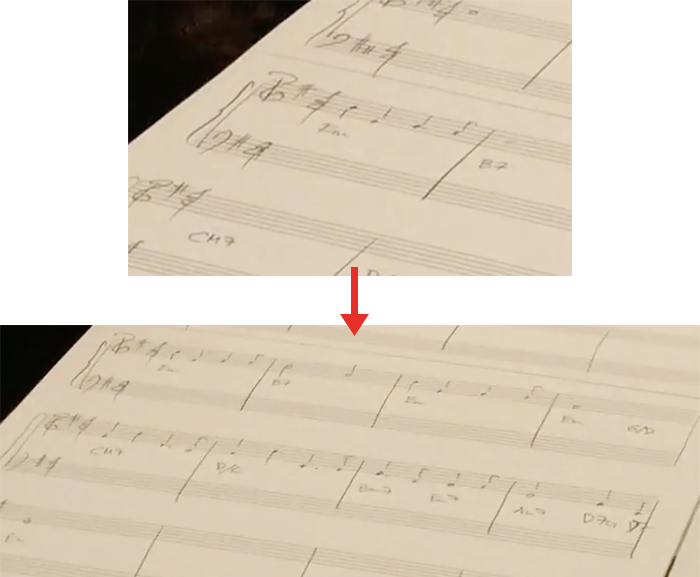 Em
B7
CM7
Em B7 Em Em G/D
CM7 D/C Bm7 Em7 Am7 D7
Em